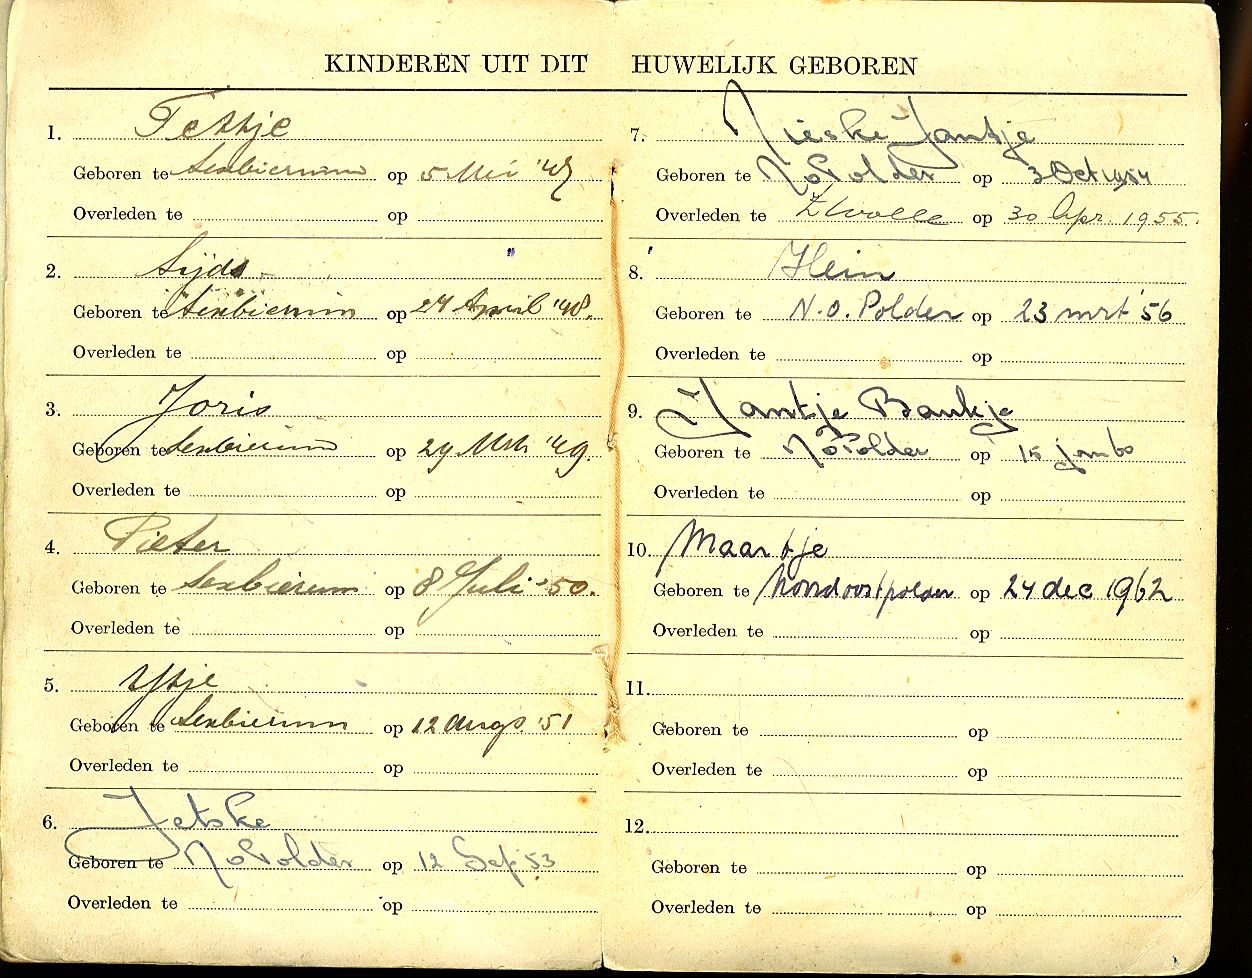 KINDEREN UIT DIT HUWELIJK GEBOREN
1. Tettje
Geboren te Sexbierum op 5 Mei '47
Overleden te op
2. Sijds
Geboren te Sexbierum op 27 April '48.
Overleden te op
3. Joris
Geboren te Sexbierum op 29 Mrt '49.
Overleden te op
4. Pieter
Geboren te Sexbierum op 8 Juli '50.
Overleden te op
5. Ytje
Geboren te Sexbierum op 12 Augs '51
Overleden te op
6. Jetske
Geboren te NoPolder op 12 Sep 53
Overleden te op
7. Nieske Jantje
Geboren te NoPolder op 3 Oct 1954
Overleden te Zwolle op 30 Apr. 1955.
8. Hein
Geboren te N.O. Polder op 23 mrt '56
Overleden te op
9. Jantje Baukje
Geboren te NoPolder op 15 jan 60
Overleden te op
10. Maartje
Geboren te Noordoostpolder op 24 dec 1962
Overleden te op
11.
Geboren te op
Overleden te op
12.
Geboren te op
Overleden te op